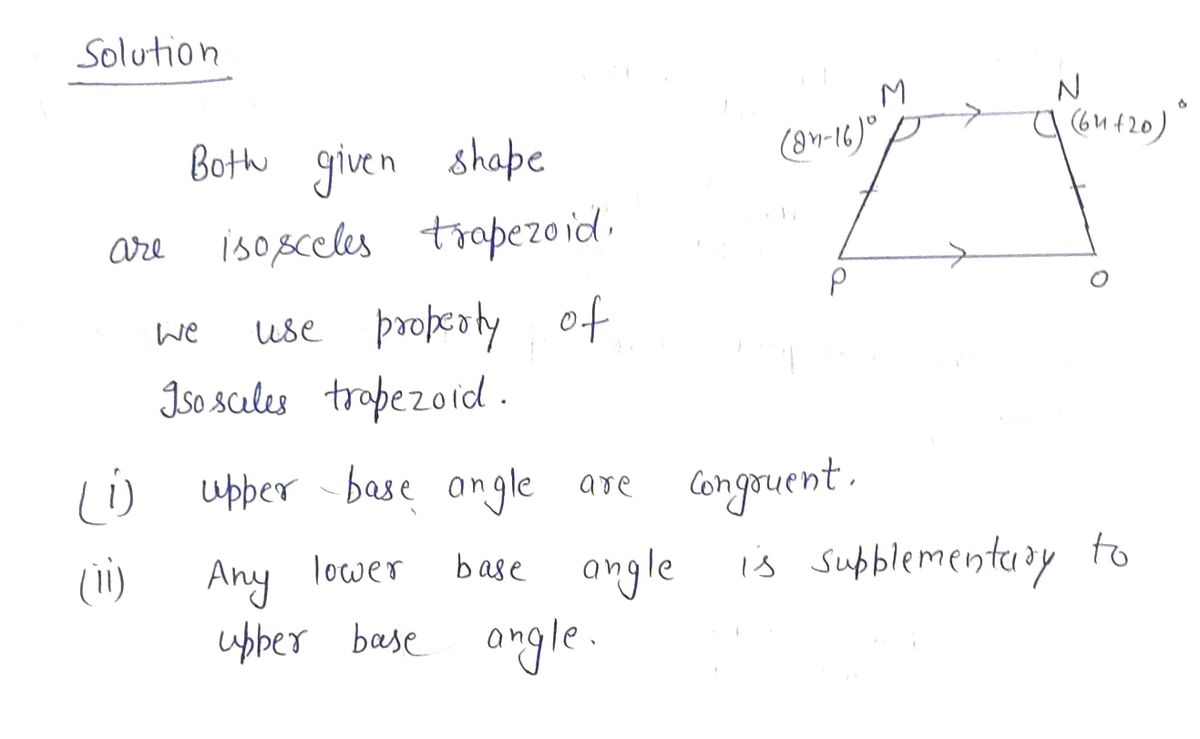 Solution
M N
(8x-16)° (6x+20)°
Both given shape
are isosceles trapezoid.
P O
we use property of
Isosceles trapezoid.
(i) upper base angle are congruent.
(ii) Any lower base angle is supplementary to
upper base angle.